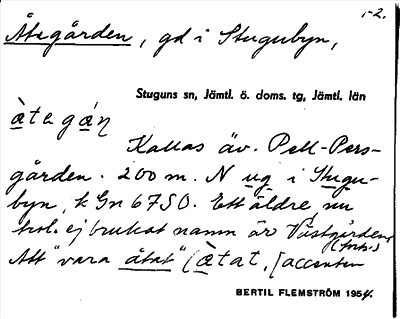 1-2.
Åtegården, gd i Stugubyn,
Stuguns sn, Jämtl. ö. doms. tg, Jämtl. län
àtegáṇ
Kallas äv. Pell-Pers-
gården. 200 m. N ug i Stugu-
byn, k Gn 6750. Ett äldre, nu
trol. ej brukat namn är Västgården
(förk.)
Att "vara åtat" (àtat, [accenten
BERTIL FLEMSTRÖM 1954.